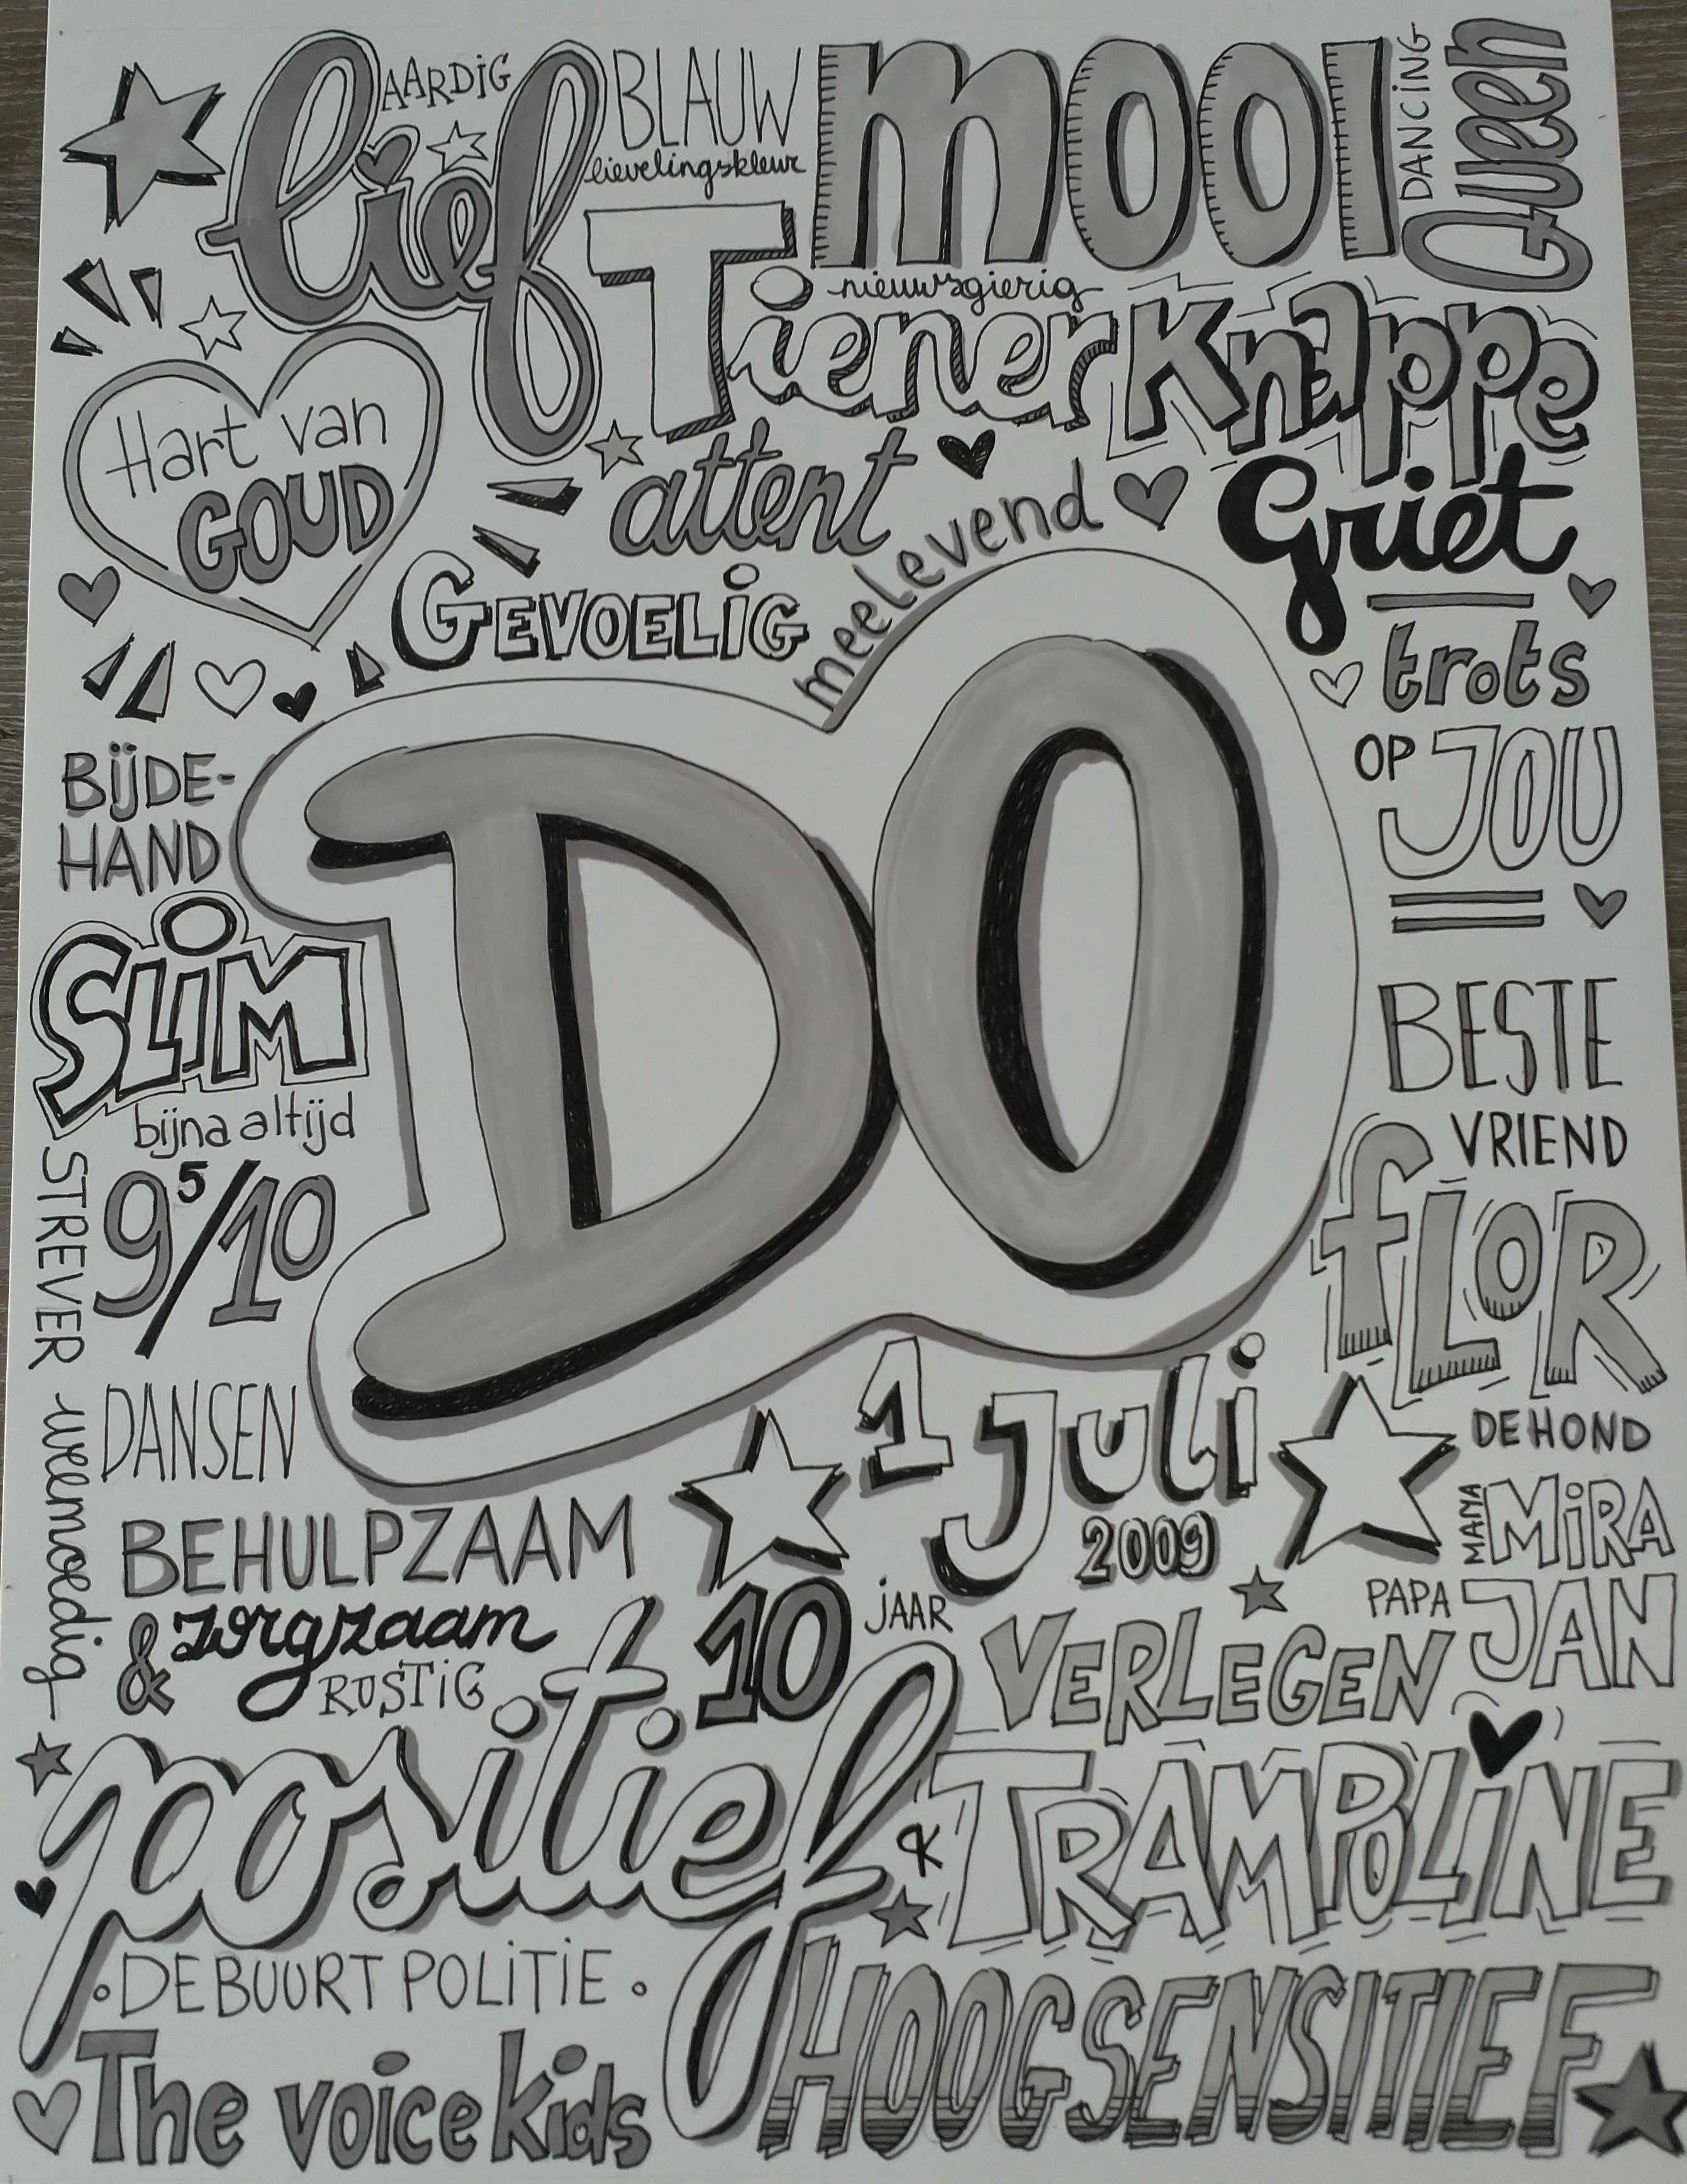 AARDIG
lief
BLAUW
lievelingskleur
MOOI
DANCING
Queen
nieuwsgierig
Tiener
Knappe
Griet
Hart van
GOUD
attent
meelevend
GEVOELIG
trots
OP JOU
BIJDE-
HAND
DO
SLIM
bijna altijd
9⁵/10
STREVER
BESTE
VRIEND
FLOR
DE HOND
DANSEN
weemoedig
1 Juli
2009
MAMA MIRA
BEHULPZAAM
& zorgzaam
RUSTIG
10 JAAR
PAPA JAN
VERLEGEN
positief
K
TRAMPOLINE
DE BUURT POLITIE
HOOGSENSITIEF
The voice kids